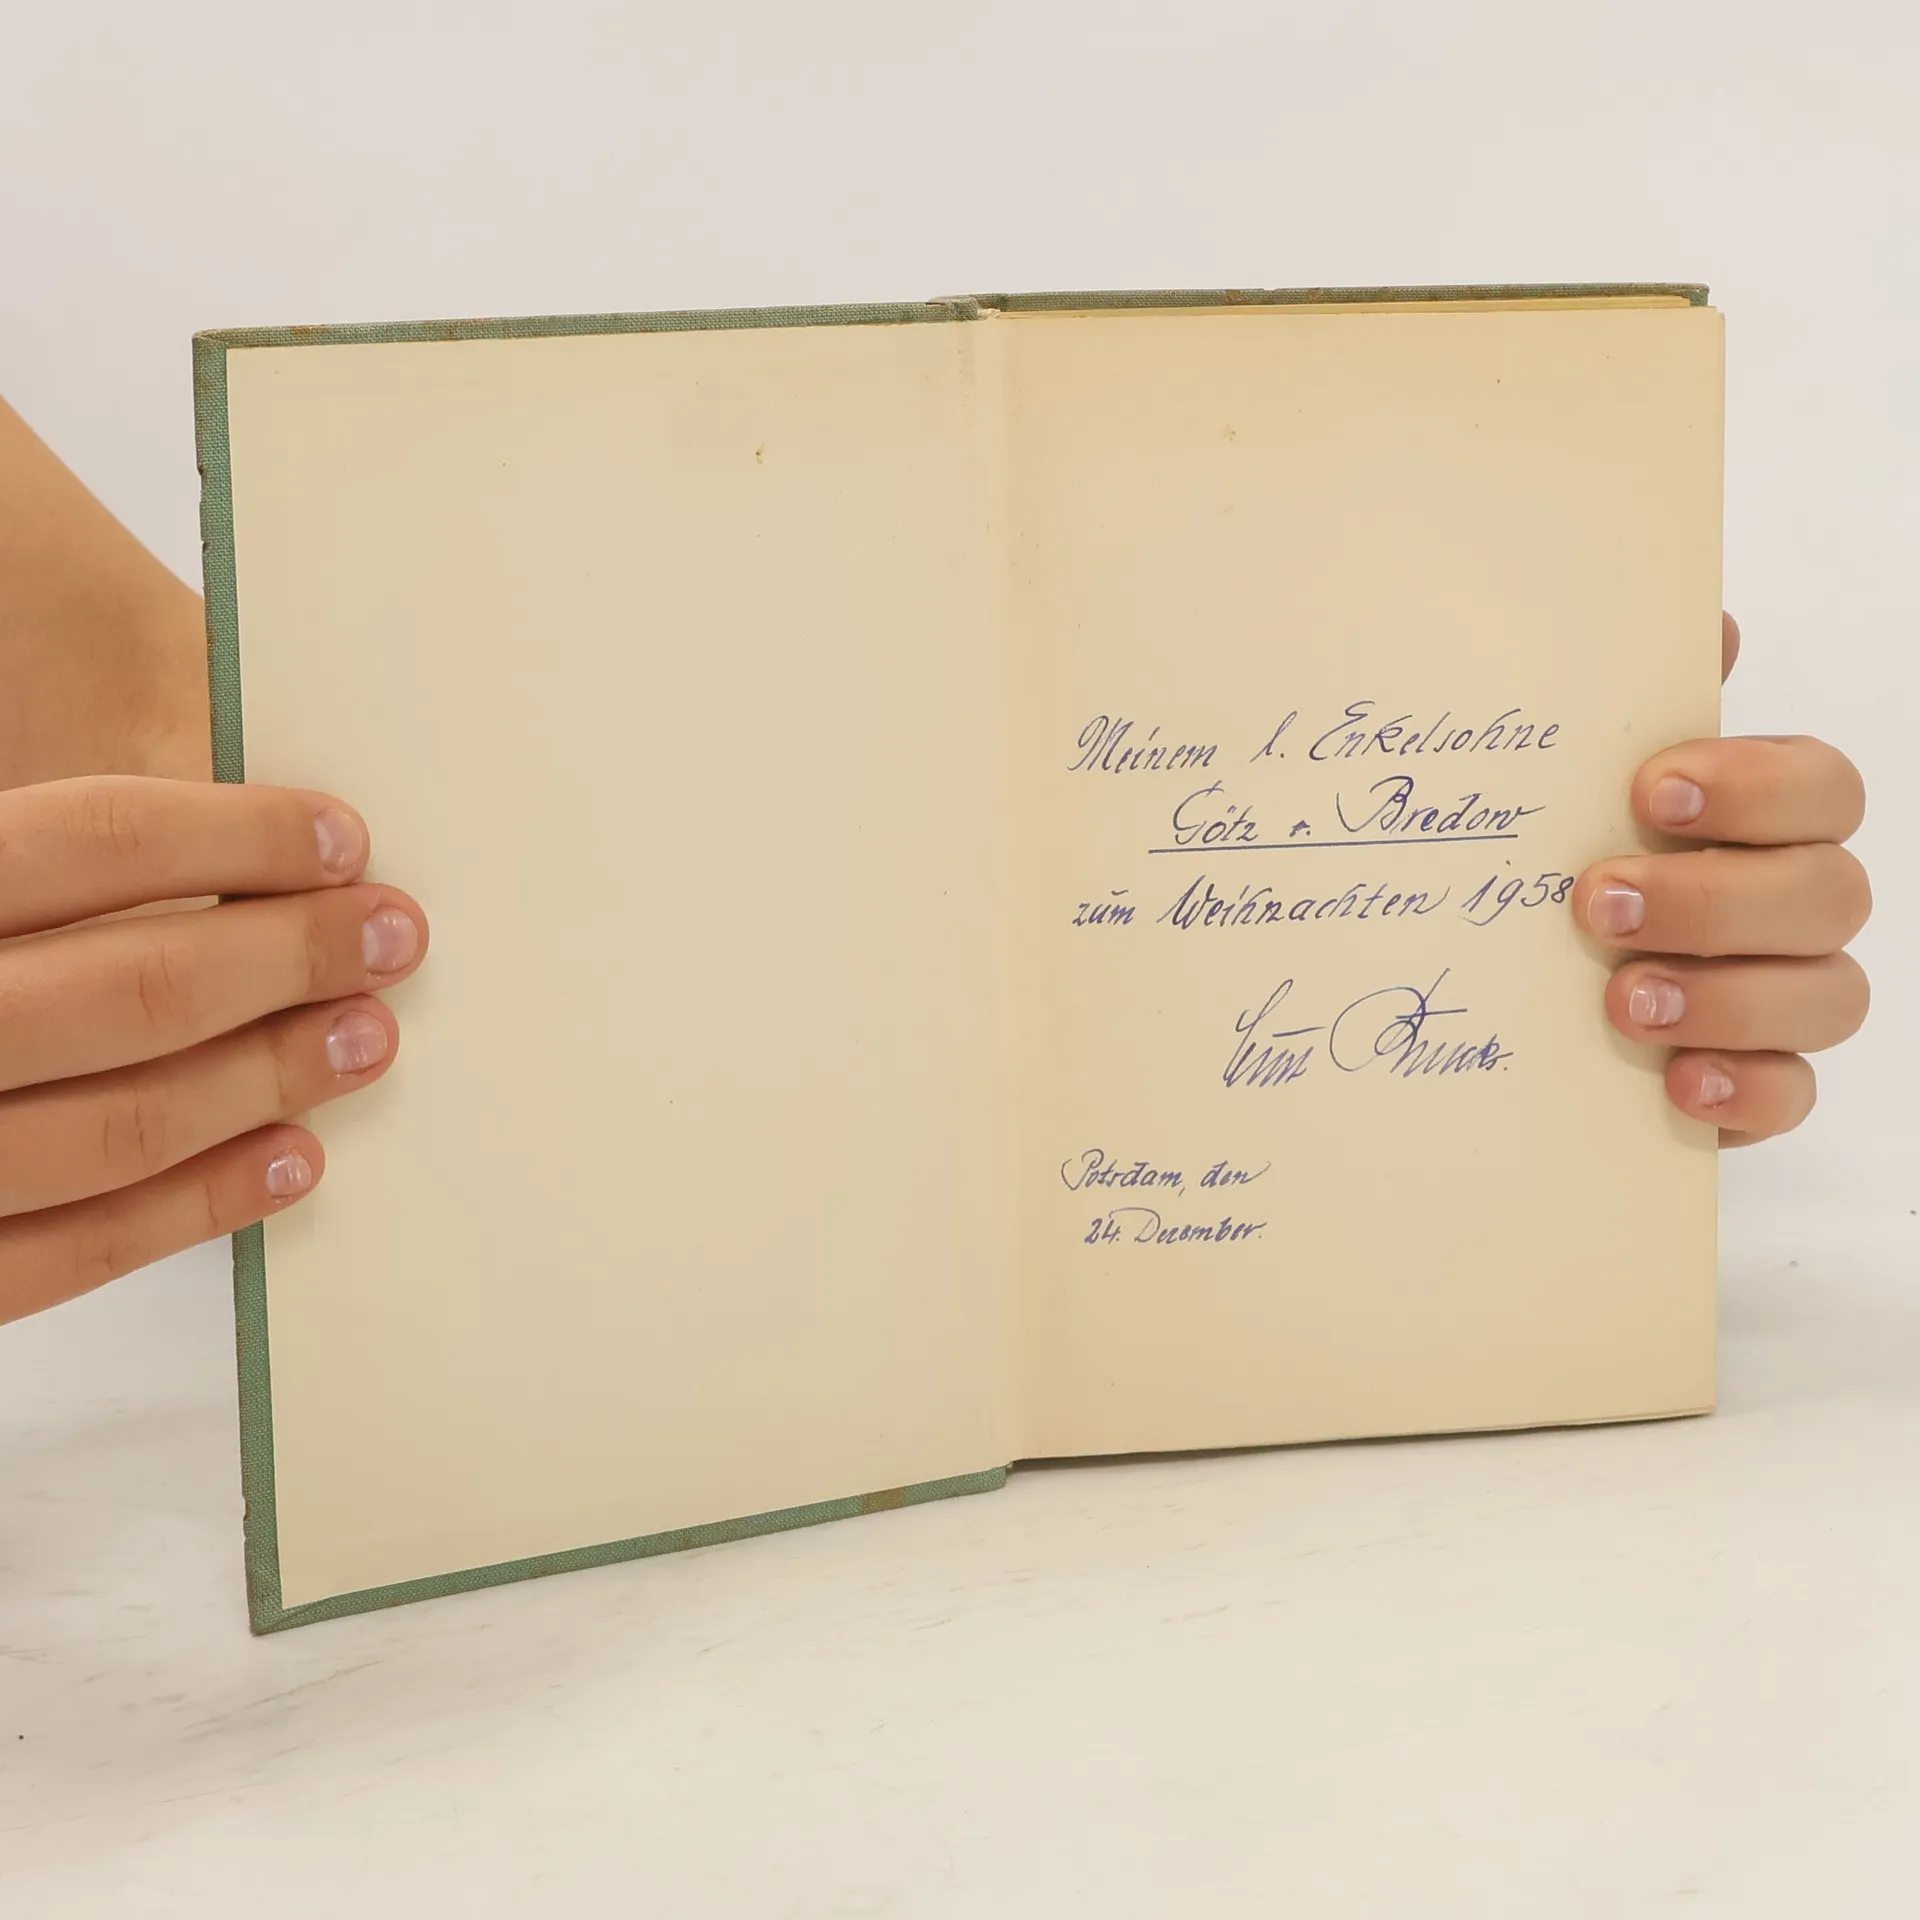 Meinem l. Enkelsohne
Götz v. Bredow
zum Weihnachten 1958
Potsdam, den
24. Dezember.